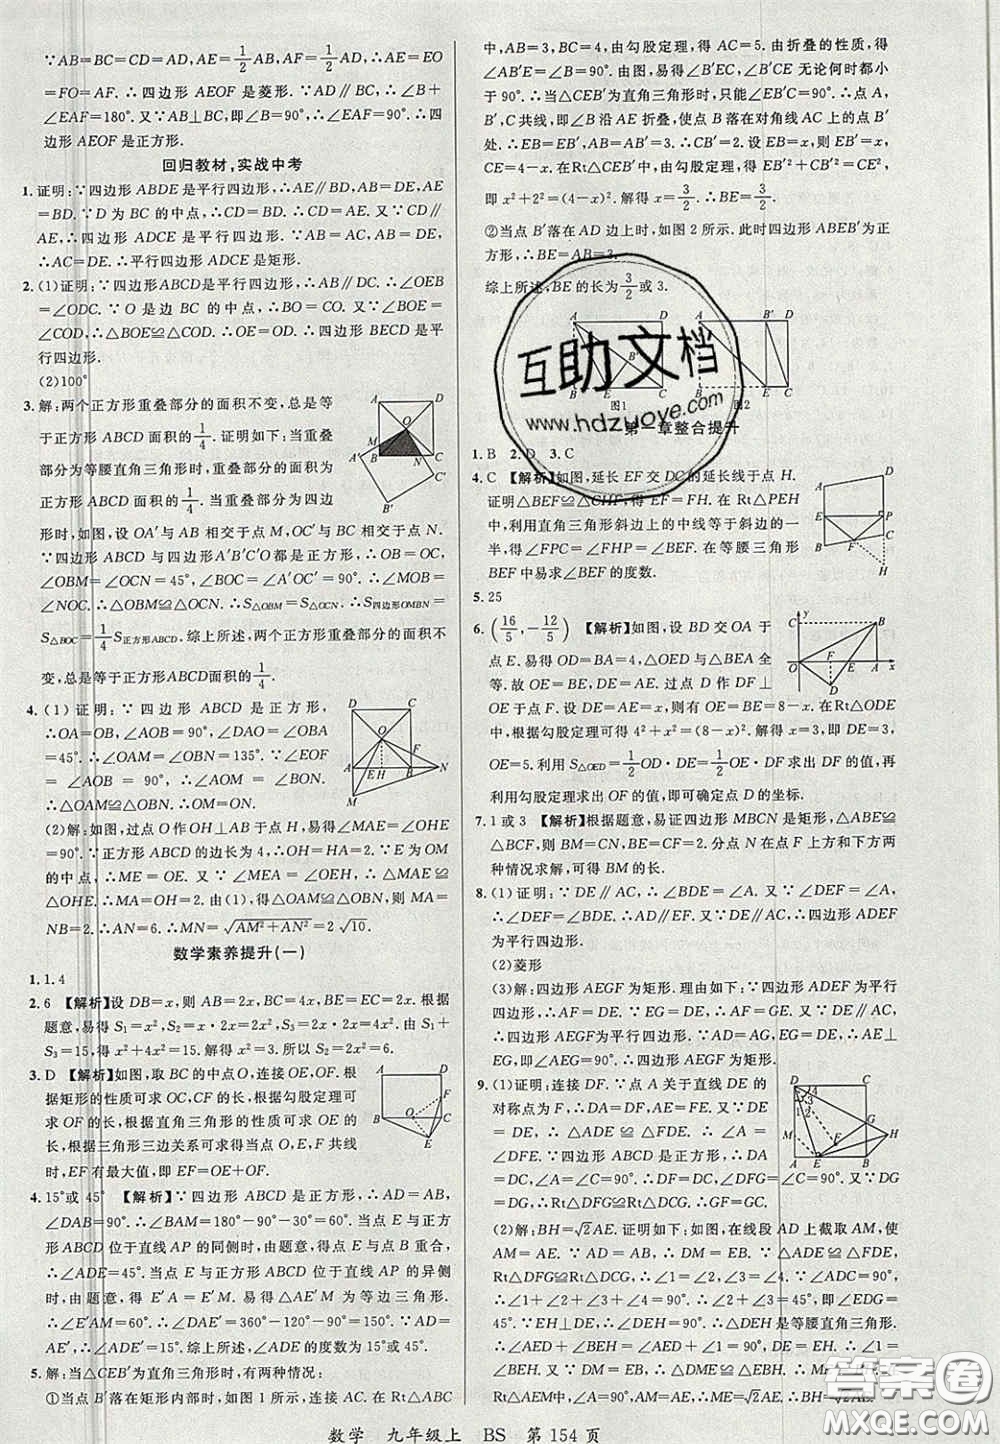 ∵AB=BC=CD=AD,AE=1/2AB,AF=1/2AD,∴AE=EO
=FO=AF.∴四边形AEOF是菱形.∵AD∥BC,∴∠B+
∠EAF=180°.又∵AB⊥BC,即∠B=90°,∴∠EAF=90°.∴四
边形AEOF是正方形.
回归教材,实战中考
1.证明:∵四边形ABDE是平行四边形,∴AE∥BD,AB=DE,AE
=BD.∵D为BC的中点,∴CD=BD.∴CD=AE.又∵CD∥
AE,∴四边形ADCE是平行四边形.∵AB=AC,AB=DE,
∴AC=DE.∴平行四边形ADCE是矩形.
2.(1)证明:∵四边形ABCD是平行四边形,∴AB∥DC.∴∠OEB
=∠ODC.∵O为BC的中点,∴BO=CO.又∵∠BOE=
∠COD,∴△BOE≌△COD.∴OE=OD.∴四边形BECD是平
行四边形.
(2)100°
3.解:两个正方形重叠部分的面积不变,总是等
于正方形ABCD面积的1/4.证明如下:当重叠
部分为等腰直角三角形时,重叠部分的面积为
正方形ABCD面积的1/4;当重叠部分为四边
形时,如图,设OA′与AB相交于点M,OC′与BC相交于点N.
∵四边形ABCD与四边形A′B′C′O都是正方形,∴OB=OC,
∠OBM=∠OCN=45°,∠BOC=∠A′OC′=90°.∴∠MOB=
∠NOC.∴△OBM≌△OCN.∴S△OBM=S△OCN.∴S四边形OMBN=
S△BOC=1/4S正方形ABCD.综上所述,两个正方形重叠部分的面积不
变,总是等于正方形ABCD面积的1/4.
4.(1)证明:∵四边形ABCD是正方形,
∴OA=OB,∠AOB=90°,∠DAO=∠OBA
=45°.∴∠OAM=∠OBN=135°.∵∠EOF
=∠AOB=90°,∴∠AOM=∠BON.
∴△OAM≌△OBN.∴OM=ON.
(2)解:如图,过点O作OH⊥AB于点H,易得∠MAE=∠OHE
=90°.∵正方形ABCD的边长为4,∴OH=HA=2.∵E为OM
的中点,∴ME=OE.又∵∠MEA=∠OEH,∴△MAE≌
△OHE.∴MA=OH=2.由(1),得△OAM≌△OBN,则MA=
BN=2.∴AN=6.∴MN=√(AM²+AN²)=2√10.
数学素养提升(一)
1.1.4
2.6 【解析】设DB=x,则AB=2x,BC=4x,BE=EC=2x.根据
题意,易得S₁=x²,S₂=x·2x=2x²,S₃=2x·2x=4x².由S₁+
S₃=15,得x²+4x²=15.解得x²=3.所以S₂=2x²=6.
3.D 【解析】如图,取BC的中点O,连接OE,OF.根
据矩形的性质可求OC,CF的长,根据勾股定理可
求OF的长,根据直角三角形的性质可求OE的
长,根据三角形三边关系可求得当点O,E,F共线
时,EF有最大值,即EF=OE+OF.
4.15°或45° 【解析】∵四边形ABCD是正方形,∴AD=AB,
∠DAB=90°.∴∠BAM=180°-90°-30°=60°.当点E与正方
形ABCD位于直线AP的同侧时,由题意,得点E与点B重合,
∴∠ADE=45°.当点E与正方形ABCD位于直线AP的异侧
时,由题意,得E′A=E′M.易得△AE′M为等边三角形,
∴∠E′AM=60°.∴∠DAE′=360°-120°-90°=150°.∵AD=
AE′,∴∠ADE′=15°.综上所述,∠ADE的度数为15°或45°.
5.解:当△CEB′为直角三角形时,有两种情况:
①当点B′落在矩形内部时,如图1所示,连接AC.在Rt△ABC
中,AB=3,BC=4,由勾股定理,得AC=5.由折叠的性质,得
∠AB′E=∠B=90°.由图,易得∠B′EC,∠B′CE无论何时都小
于90°.∴当△CEB′为直角三角形时,只能∠EB′C=90°.∴点A,
B′,C共线,即△B沿AE折叠,使点B落在对角线AC上的点B′
处.∴EB=EB′,AB=AB′=3.∴CB′=5-3=2.设BE=x,则
EB′=x,CE=4-x.在Rt△CEB′中,由勾股定理,得EB′²+CB′²=CE²,
即x²+2²=(4-x)².解得x=3/2.∴BE=3/2.
②当点B′落在AD边上时,如图2所示.此时四边形ABEB′为正
方形,∴BE=AB=3.
综上所述,BE的长为3/2或3.
图1 图2
第一章整合提升
1.B 2.D 3.C
4.C 【解析】如图,延长EF交DC的延长线于点H.
证明△BEF≌△CHF,得EF=FH.在Rt△PEH
中,利用直角三角形斜边上的中线等于斜边的一
半,得∠FPC=∠FHP=∠BEF.在等腰三角形
BEF中易求∠BEF的度数.
5.25
6.(16/5,-12/5) 【解析】如图,设BD交OA于
点E.易得OD=BA=4,△OED与△BEA全
等.故OE=BE.如图,过点D作DF⊥
OE于点F.设OE=x,则有OE=BE=8-x.在Rt△ODE
中,根据勾股定理可得4²+x²=(8-x)².即DE=3,
OE=5.利用S△OED=1/2OD·DE=1/2OE·DF求出DF的值,再
利用勾股定理求出OF的值,即可求解点D的坐标.
7.1或3 【解析】根据题意,易证四边形MBCN是矩形,△ABE≌
△BCF,则BM=CN,BE=CF=2.分点N在点F上方和下方
两种情况求解,可得BM的长.
8.(1)证明:∵DE∥AC,∴∠BDE=∠A.又∵∠DEF=∠A,
∴∠DEF=∠BDE.∴AD∥EF.又∵DE∥AC,∴四边形ADEF
为平行四边形.
(2)菱形
(3)解:四边形AEGF为矩形.理由如下:∵四边形ADEF为菱
形,∴AD=DE=AF=EF.∵DG=DE,∴AF=DG.又∵AF∥DG,
∴四边形AEGF为平行四边形.∵AD=AG,AF=EF,∴AG=EG.
∴∠AEG=90°.∴四边形AEGF为矩形.
9.(1)证明:连接DF.∵点A关于直线DE的
对称点为F,∴DA=DF=DC,AE=FE.又∵
DE=DE,∴△DAE≌△DFE.∴∠A=
∠DFE.∵四边形ABCD是正方形,∴∠A=
∠C=90°.∴∠DFG=∠C=90°.又∵DG=
DG,∴Rt△DFG≌Rt△DCG.∴GF=GC.
(2)解:BH=√2AE.证明如下:如图,在线段AD上截取AM,使
AM=AE.∵AD=AB,∴DM=BE.由(1),得△DAE≌△DFE,
Rt△DFG≌Rt△DCG,∴∠1=∠2,∠3=∠4.∵∠ADC=90°,
∴∠1+∠2+∠3+∠4=90°.∴∠2+∠3=45°,即∠EDG=
45°.∵EH⊥DE,∴∠DEH=90°.∴∠AED+∠BEH=
∠AED+∠1=90°,DE=EH.∴∠1=
∠BEH.又∵DM=EB,∴△DME≌△EBH.∴EM=HB.
在Rt△AEM中,∠A=90°,AM=AE,∴EM=√2AE.∴BH=√2AE.
数学 九年级上 BS 第154页
互助文档
www.hdzuoye.com
答案圈
MXQE.COM